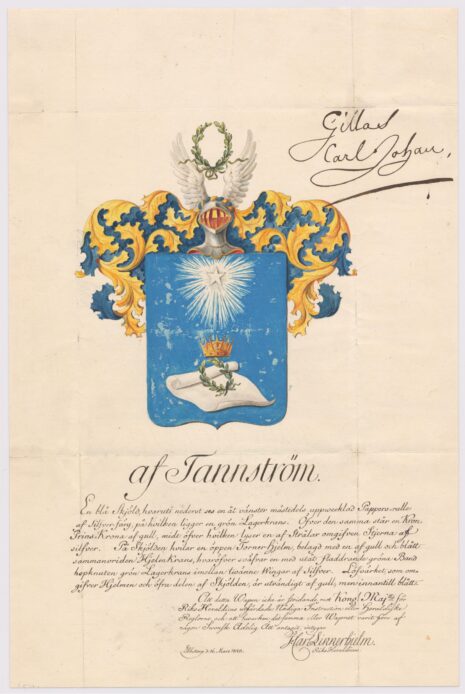 Gillas
Carl Johan.
af Tannström.
En blå Skjöld, hvaruti nederst ses en åt vänster mästedels uppvecklad Pappers-rulle
af Silfver-färg, på hvilken ligger en grön Lagerkrans. Öfver den samma står en
Krona af gull, midt öfver hvilken lyser en af Strålar omgifven Stjerna af
silfver. På Skjölden hvilar en öppen Torner-Hjelm, belagd med en af gull och blått
sammanvriden Hjelm-Krans, hvaröfver sväfvar en med utåt fladdrande gröna Band
hopknuten grön Lagerkrans emellan tvänne Vingar af Silfver. Löfvärket, som om-
gifver Hjelmen och öfre delen af Skjölden, är utvändigt af gull, men innantill blått.
Att detta Wapen icke är stridande mot Kongl Maj:ts för
Riks Heraldicus utfärdade Nådiga Instruction eller Heraldiske
Reglorne, och att hvarken detsamma eller Wapnet varit före af
någon Svensk Adelig Ätt antaget, intygar
Linnerhielm.
Riks Heraldicus.